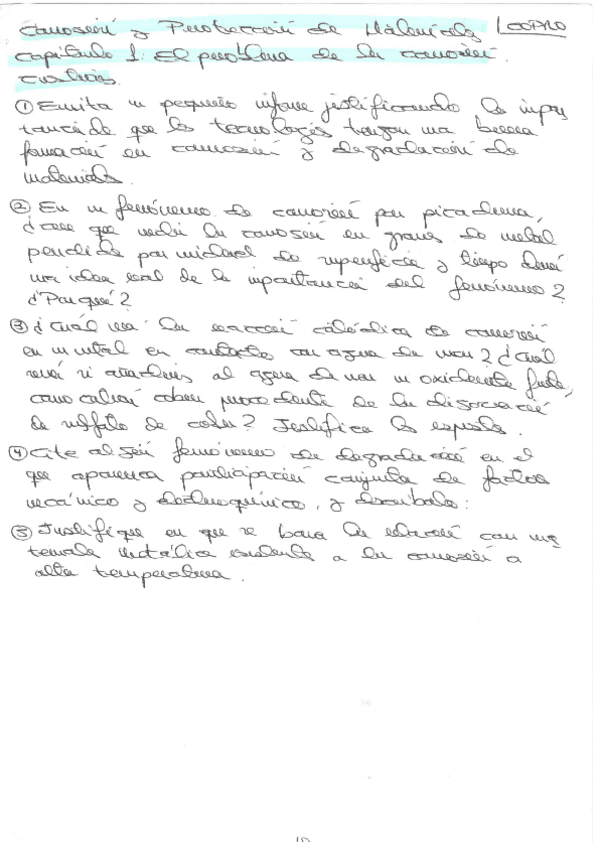 Corrosión y Protección de Materiales COPRO
Capítulo 1: El problema de la corrosión.
① Emita un pequeño informe justificando la impor
tancia de que los tecnólogos tengan una buena
formación en corrosión y degradación de
materiales.
② En un fenómeno de corrosión por picadura,
¿cree que medir la corrosión en gramos de metal
perdido por unidad de superficie y tiempo dará
una idea real de la importancia del fenómeno?
¿Por qué?
③ ¿Cuál será la reacción catódica de corrosión
en un metal en contacto con agua de mar? ¿Cuál
será si añadimos al agua de mar un oxidante fuerte,
como catión cobre procedente de la disociación
de sulfato de cobre? Justifica la respuesta.
④ Cite algún fenómeno de degradación en el
que aparezca participación conjunta de factor
mecánico y electroquímico, y descríbalo.
⑤ Justifique en que se basa la relación con
metálica resistente a la corrosión a
alta temperatura.